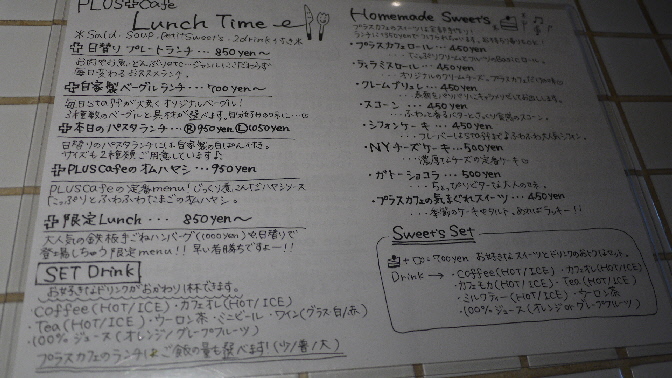 PLUS Cafe
Lunch Time
※ Salad. Soup. petit Sweet's. drink
日替り プレートランチ… 850yen〜
お肉やお魚
毎日変わる
自家製ベーグルランチ… 700yen〜
毎日 大気 オリジナルベーグル!
種類のベーグルと具材が選べます。
本日のパスタランチ…Ⓡ950yen Ⓛ1050yen
日替りのパスタランチには自家製の白ぱん付き。
サイズも2種類ご用意しています♪
PLUS Cafeのオムハヤシ… 950yen
PLUS Cafeの定番menu!じっくり煮こんだハヤシソース
たっぷりとふわふわたまごのハヤシ。
限定Lunch… 850yen〜
大人気の鉄板手ごねハンバーグ(1000yen)や日替りで
登場しちゃう限定menu!! 早い者勝ちですよー!!
SET Drink
お好きなドリンクがおかわり1杯できます。
・Coffee(HOT/ICE)・カフェオレ(HOT/ICE)
・Tea(HOT/ICE)・ウーロン茶・ミニビール・ワイン(グラス・白/赤)
・100%ジュース(オレンジ/グレープフルーツ)
プラスカフェのランチはご飯の量も選べます!(少/普/大)
Homemade Sweet's
プラスカフェのスイーツは
・プラスカフェロール… 450yen
たっぷりクリームとフルーツ のロール。
・ティラミスロール… 450yen
オリジナルのクリームチーズ。プラスカフェ
・クレームブリュレ… 450yen
表面をパリパリにキャラメリゼしてお出しします。
・スコーン… 450yen
ふわっと香るバターと
・シフォンケーキ… 450yen
フレーバーは ふわふわ大人気シフォン。
・NYチーズケーキ… 500yen
濃厚チーズの定番ケーキ
・ガトーショコラ… 500yen
ちょっぴりビターな大人の
・プラスカフェの気まぐれスイーツ… 450yen
季節のケーキやタルト。あればラッキー!!
Sweet's Set
+ = 700yen お好きなスイーツとドリンクのおとくなセット。
Drink → ・Coffee(HOT/ICE)・カフェオレ(HOT/ICE)
・カフェモカ(HOT/ICE)・Tea(HOT/ICE)
・ミルクティー(HOT/ICE)・ウーロン茶
・100%ジュース(オレンジorグレープフルーツ)